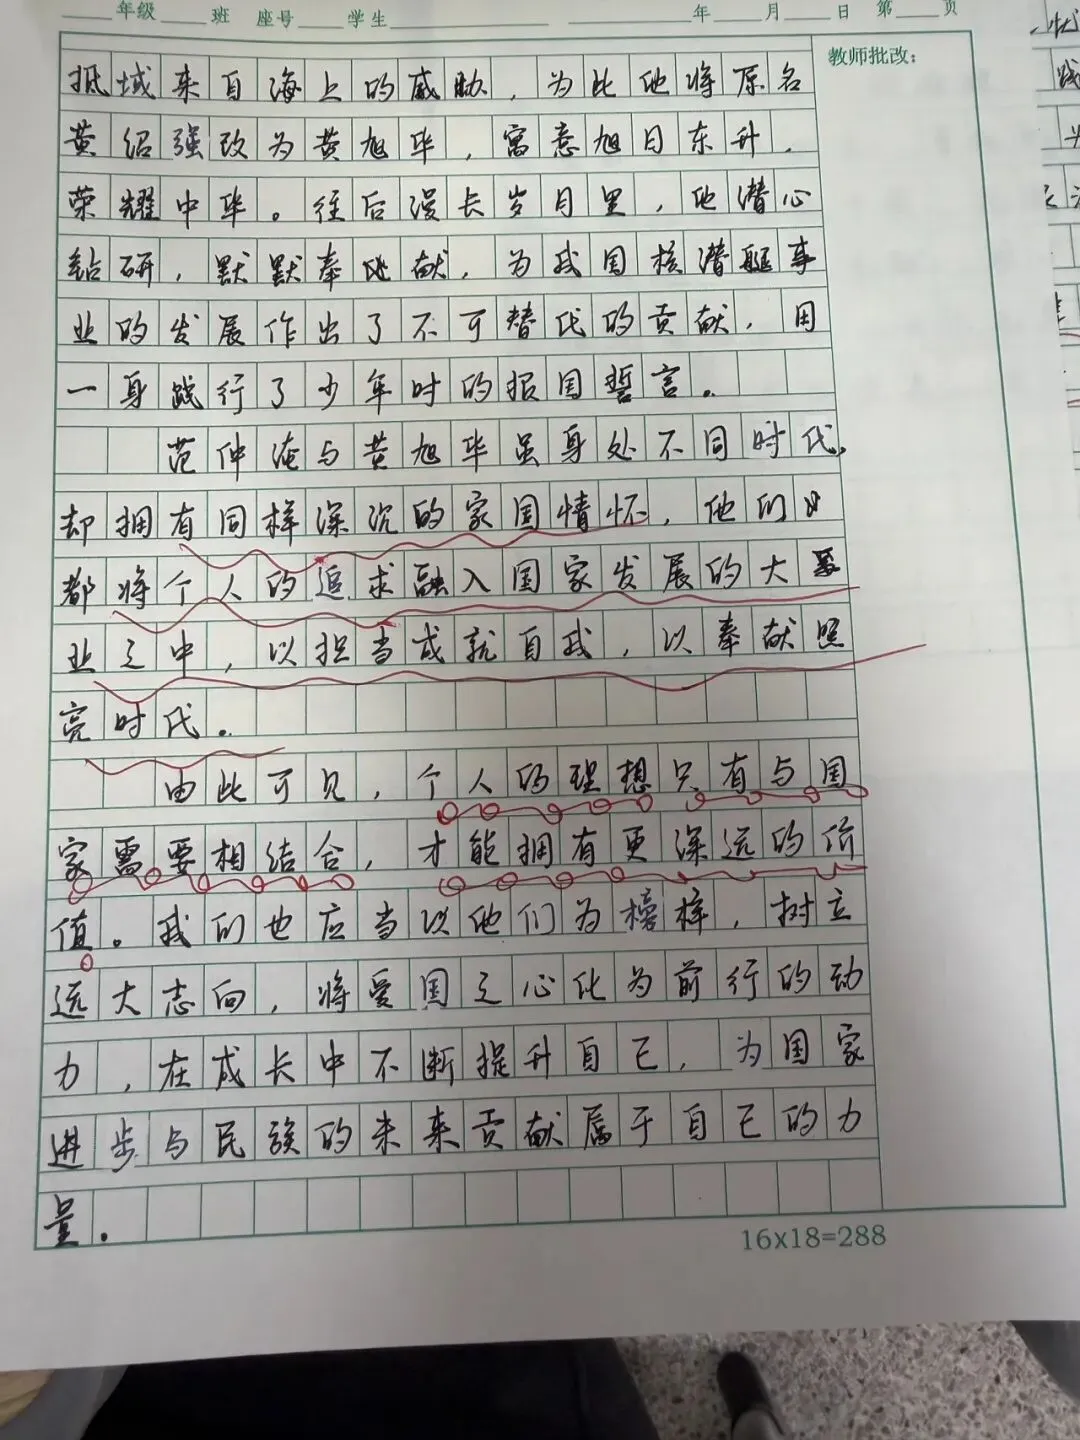 年级 班 座号 学生 年 月 日 第 页
教师批改：
抵域来自海上的威胁，为此他将原名
黄绍强改为黄旭华，寓意旭日东升，
荣耀中华。往后漫长岁月里，他潜心
钻研，默默奉献，为我国核潜艇事
业的发展作出了不可替代的贡献，用
一身践行了少年时的报国誓言。
范仲淹与黄旭华虽身处不同时代，
却拥有同样深沉的家国情怀，他们
都将个人的追求融入国家发展的大
业之中，以担当成就自我，以奉献照
亮时代。
由此可见，个人的理想只有与国
家需要相结合，才能拥有更深远的价
值。我们也应当以他们为榜样，树立
远大志向，将爱国之心化为前行的动
力，在成长中不断提升自己，为国家
进步与民族的未来贡献属于自己的力
量。
16x18=288